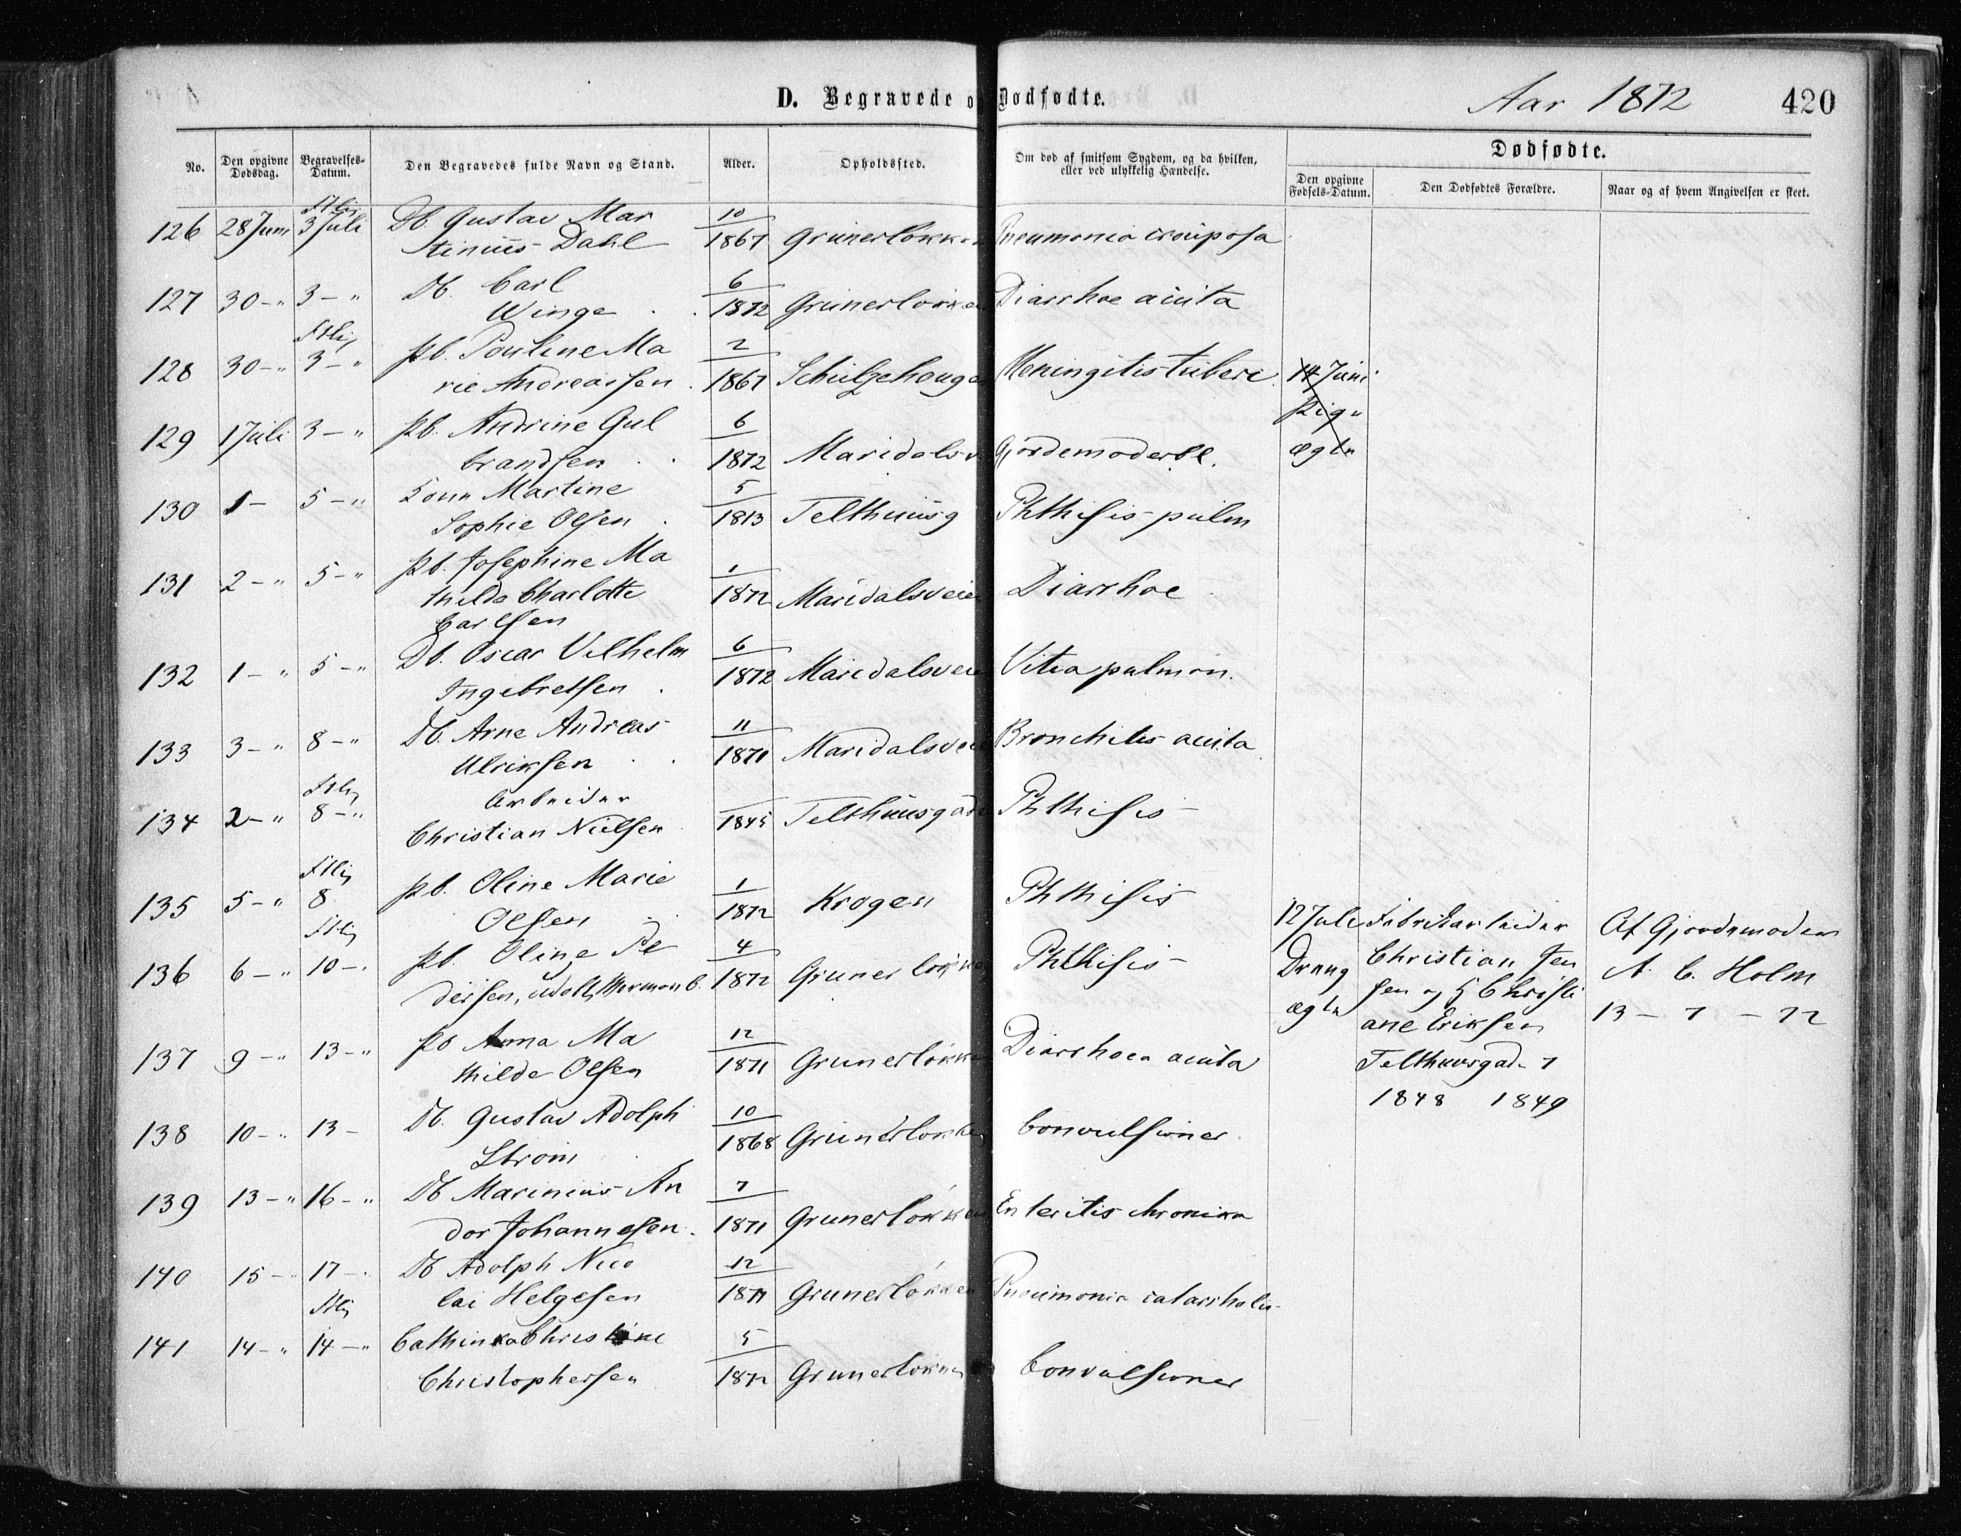 D. Begravede o Dødfødte.
Aar 1872
420
No.
Den opgivne Dødsdag.
Begravelses-Datum.
Den Begravedes fulde Navn og Stand.
Alder.
Opholdssted.
Om død af smitsom Sygdom, og da hvilken, eller ved ulykkelig Hændelse.
Dødfødte.
Den opgivne Fødsels-Datum.
Den Dødfødtes Forældre.
Naar og af hvem Angivelsen er skeet.
126 28 Juni 3 Juli Db. Gustav Mar 10
tinius Dahl 1867 Grunerløkken Pneumonia crouposa
127 30 - " 3 - " Db. Carl 6
Winge 1872 Grunerløkken Diarrhoe acuta
128 30 - " 3 - " Pb. Pauline Ma 2
rie Andreassen 1867 Schulzehougen Meningitis tuberc. 14 Juni
Pige
ægte
129 1 Juli 3 - " Pb. Andrine Gul 6
brandsen 1872 Maridalsv Gjordemoderbl.
130 1 - 5 - " Martine 5
Sophie Olsen 1813 Telthuusg Phthisis pulm
131 2 - " 5 - " Pb. Josephine Ma 1
thilde Charlotte 1872 Maridalsveien Diarrhoe
Carlsen
132 1 - " 5 - " Db. Oscar Vilhelm 6
Ingebretsen 1872 Maridalsveie Vitia pulmon.
133 3 - " 8 - " Db. Arne Andreas 11
Ulriksen 1871 Maridalsveie Bronchitis acuta
134 2 - " 8 - " Arbeider
Christian Nielsen 1845 Telthuusgade Phthisis
135 5 - " 8 Pb. Oline Marie 1
Olsen 1872 Krogen Phthisis
136 6 - " 10 - Pb. Oline Pe 4
dersen, 1872 Grunerløkke Phthisis
12 Juli
Dreng
ægte
Fabrikarbeider
Christian Jen
sen og Christi
ane Eriksen
Telthuusgade 7
1848 1849
Af Gjordemoder
A. C. Holm
13 - 7 - 72
137 9 - " 13 - " Pb Anna Ma 12
thilde Olsen 1871 Grunerløkken Diarrhoea acuta
138 10 - " 13 - Db. Gustav Adolph 10
Strøm 1868 Grunerløkken Convulsioner
139 13 - " 16 - " Db Marinius An 7
dor Johannesen. 1871 Grunerløkken Enteritis chronica
140 15 - 17 - Db Adolph Nico 12
lai Helgesen 1871 Grunerløkken Pneumonia catarrhalis
141 14 - " 14 - " Cathinka Christine 5
Christophersen 1872 Grunerløkken Convulsioner